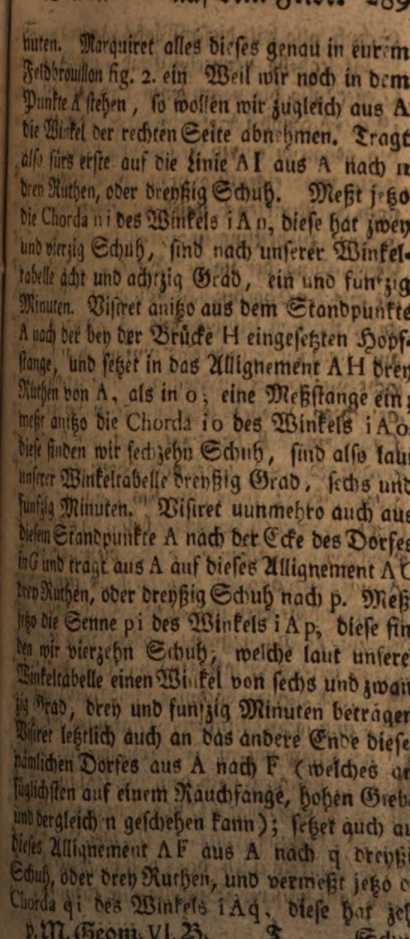 nuten. Marquiret alles dieses genau in eurem
Feldbrouillon fig. 2. ein Weil wir noch in dem
Punkte A stehen, so wollen wir zugleich aus A
die Winkel der rechten Seite abnehmen. Tragt
also fürs erste auf die Linie A I aus A nach n
drey Ruthen, oder dreyßig Schuh. Meßt jetzo
die Chorda n i des Winkels i A n, diese hat zwey
und vierzig Schuh, sind nach unserer Winkel-
tabelle acht und achtzig Grad, ein und funfzig
Minuten. Visiret anitzo aus dem Standpunkte
A nach der bey der Brücke H eingesetzten Hopf-
stange, und setzet in das Allignement A H drey
Ruthen von A, als in o, eine Meßstange ein;
meßt anitzo die Chorda i o des Winkels i A o
diese finden wir sechzehn Schuh, sind also laut
unserer Winkeltabelle dreyßig Grad, sechs und
funfzig Minuten. Visiret nunmehro auch aus
diesem Standpunkte A nach der Ecke des Dorfes
in G und tragt aus A auf dieses Allignement A G
drey Ruthen, oder dreyßig Schuh nach p. Meß
jetzo die Senne p i des Winkels i A p, diese fin
den wir vierzehn Schuh, welche laut unsere
Winkeltabelle einen Winkel von sechs und zwan
zig Grad, drey und funfzig Minuten beträget
Visiret letztlich auch an das andere Ende diese
nämlichen Dorfes aus A nach F (welches
füglichsten auf einem Rauchfange, hohen Gieb
und dergleichen geschehen kann); setzet auch
dieses Allignement A F aus A nach q dreyßi
Schuh, oder drey Ruthen, und vermeßt jetzo
Chorda q i des Winkels i A q, diese hat
p. M. Geom. VI. B. T Schuh